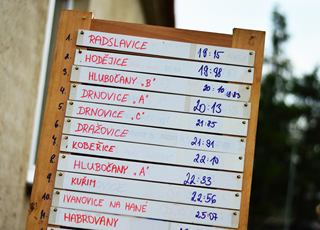 1. RADSLAVICE 18:15
2. HODĚJICE 18:98
3. HLUBOČANY „B"
4. DRNOVICE „A" 20:13
5. DRNOVICE „C" 21:25
6. DRAŽOVICE 21:91
KOBEŘICE 22:10
HLUBOČANY „A" 22:33
9. KUŘIM 22:56
10. IVANOVICE NA HANÉ 25:07
HABROVANY